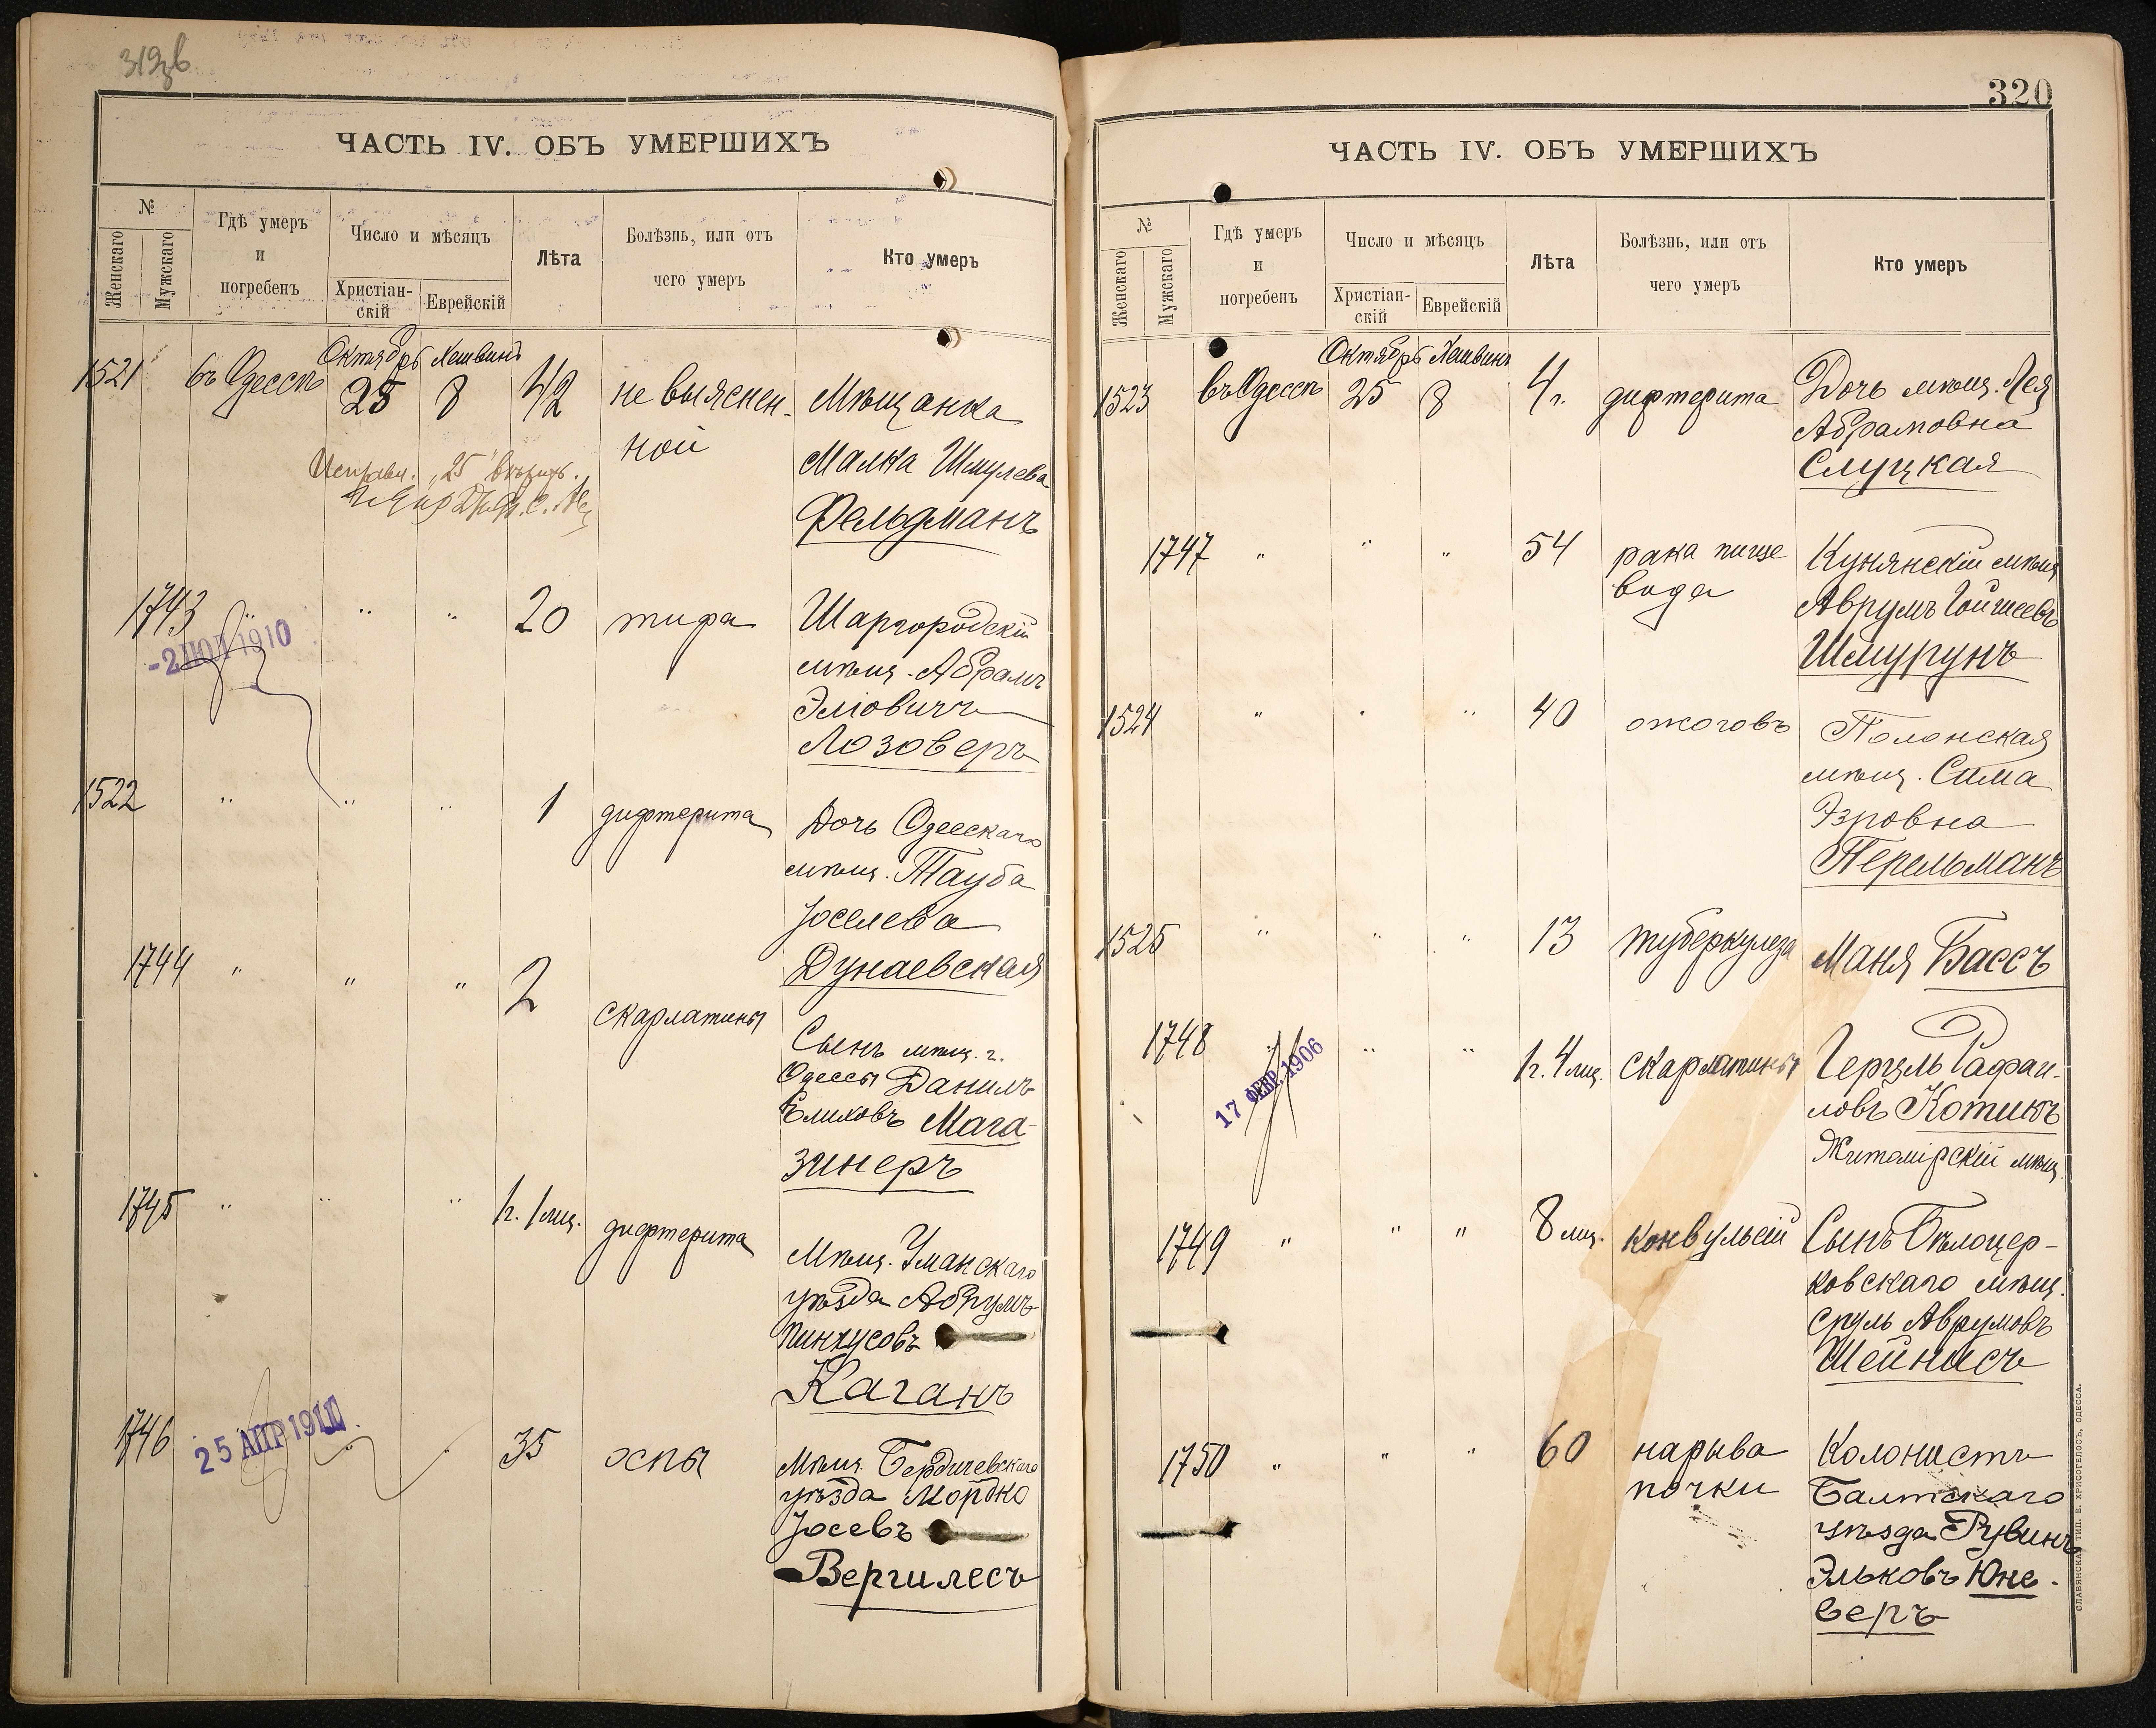 319зв
ЧАСТЬ IV. ОБЪ УМЕРШИХЪ
№
Женскаго
Мужскаго
Гдѣ умеръ
и
погребенъ
Число и мѣсяцъ
Христіан-
скій
Еврейскій
Лѣта
Болѣзнь, или отъ
чего умеръ
Кто умеръ
1521 въ Одессѣ Октябрь 25 Хешвинъ 8 42 не выяснен-
ной
Мѣщанка
Малка Шмулева
Фельдманъ
Исправл. „25“ вѣрить.
1743 " " " 20 тифа Шаргородскій
мѣщ. Абрамъ
Эліовичъ
Лозоверъ
-2 ИЮЛ 1910
1522 " " " 1 дифтерита Дочь Одесскаго
мѣщ. Тауба
Іоселева
Дунаевская
1744 " " " 2 скарлатины Сынъ мѣщ. г.
Одессы Данилъ
Елиховъ Мага-
зинеръ
1745 " " " 1г. 1 мц. дифтерита Мѣщ. Уманскаго
уѣзда Абрумъ
Пинхусовъ
Каганъ
1746 " " 35 оспы Мѣщ. Бердичевскаго
уѣзда Мордко
Іосевъ
Вергилесъ
25 АПР 191
320
ЧАСТЬ IV. ОБЪ УМЕРШИХЪ
№
Женскаго
Мужскаго
Гдѣ умеръ
и
погребенъ
Число и мѣсяцъ
Христіан-
скій
Еврейскій
Лѣта
Болѣзнь, или отъ
чего умеръ
Кто умеръ
1523 въ Одессѣ Октябрь 25 Хешвинъ 8 4 г. дифтерита Дочь мѣщ. Лея
Абрамовна
Слуцкая
1747 " " " 54 рака пище
вода
Кунянскій мѣщ
Аврумъ Гойшеевъ
Шмурунъ
1524 " " " 40 ожоговъ Полонская
мѣщ. Сима
Эзровна
Перельманъ
1525 " " " 13 туберкулеза Маня Бассъ
1748 " " " 1г. 4 мц. скарлатины Герцль Рафаи-
ловъ Котикъ
Житомірскій мѣщ.
17 ФЕВР. 1906
1749 " " " 8 мц. конвульсій Сынъ Бѣлоцер-
ковскаго мѣщ.
Сруль Аврумовъ
Шейнисъ
1750 " " " 60 нарыва
почки
Колонистъ
Балтскаго
уѣзда Рувинъ
Эльковъ Юне-
веръ
СЛАВЯНСКАЯ ТИП. Е. ХРИСОГЕЛОСЪ, ОДЕССА.